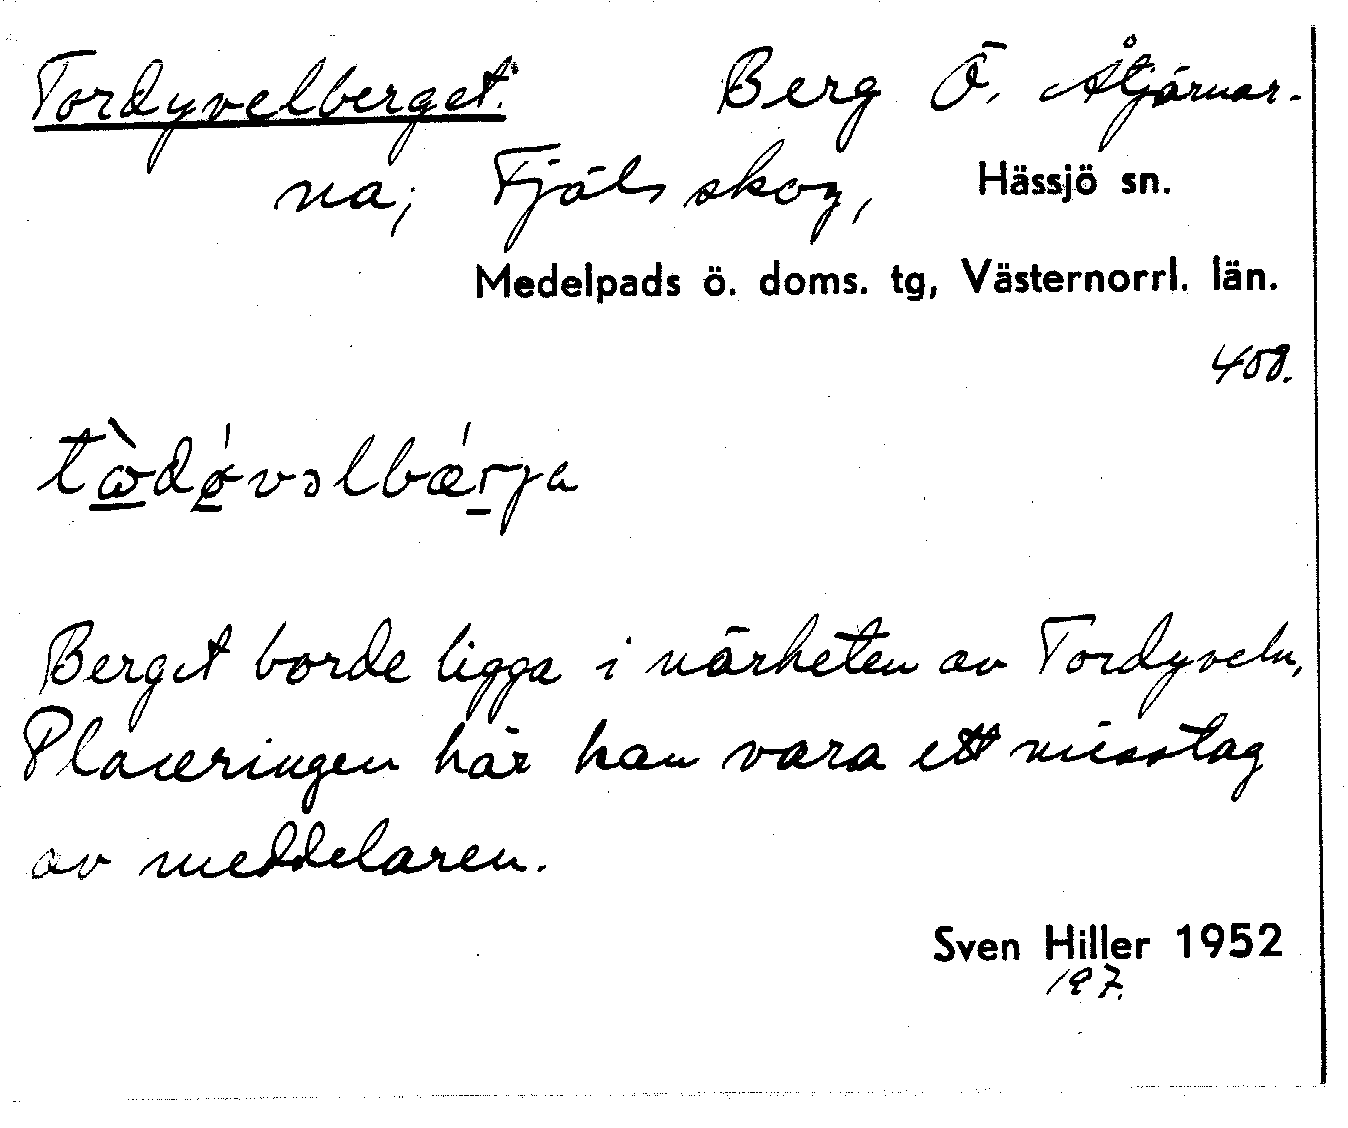 Tordyvelberget. Berg Ö. Åtjärnar-
na; Fjäls skog, Hässjö sn.
Medelpads ö. doms. tg, Västernorrl. län.
408.
tὼdǿvəlbǽrja
Berget borde ligga i närheten av Tordyveln,
Placeringen här kan vara ett misstag
av meddelaren.
Sven Hiller 1952
197.